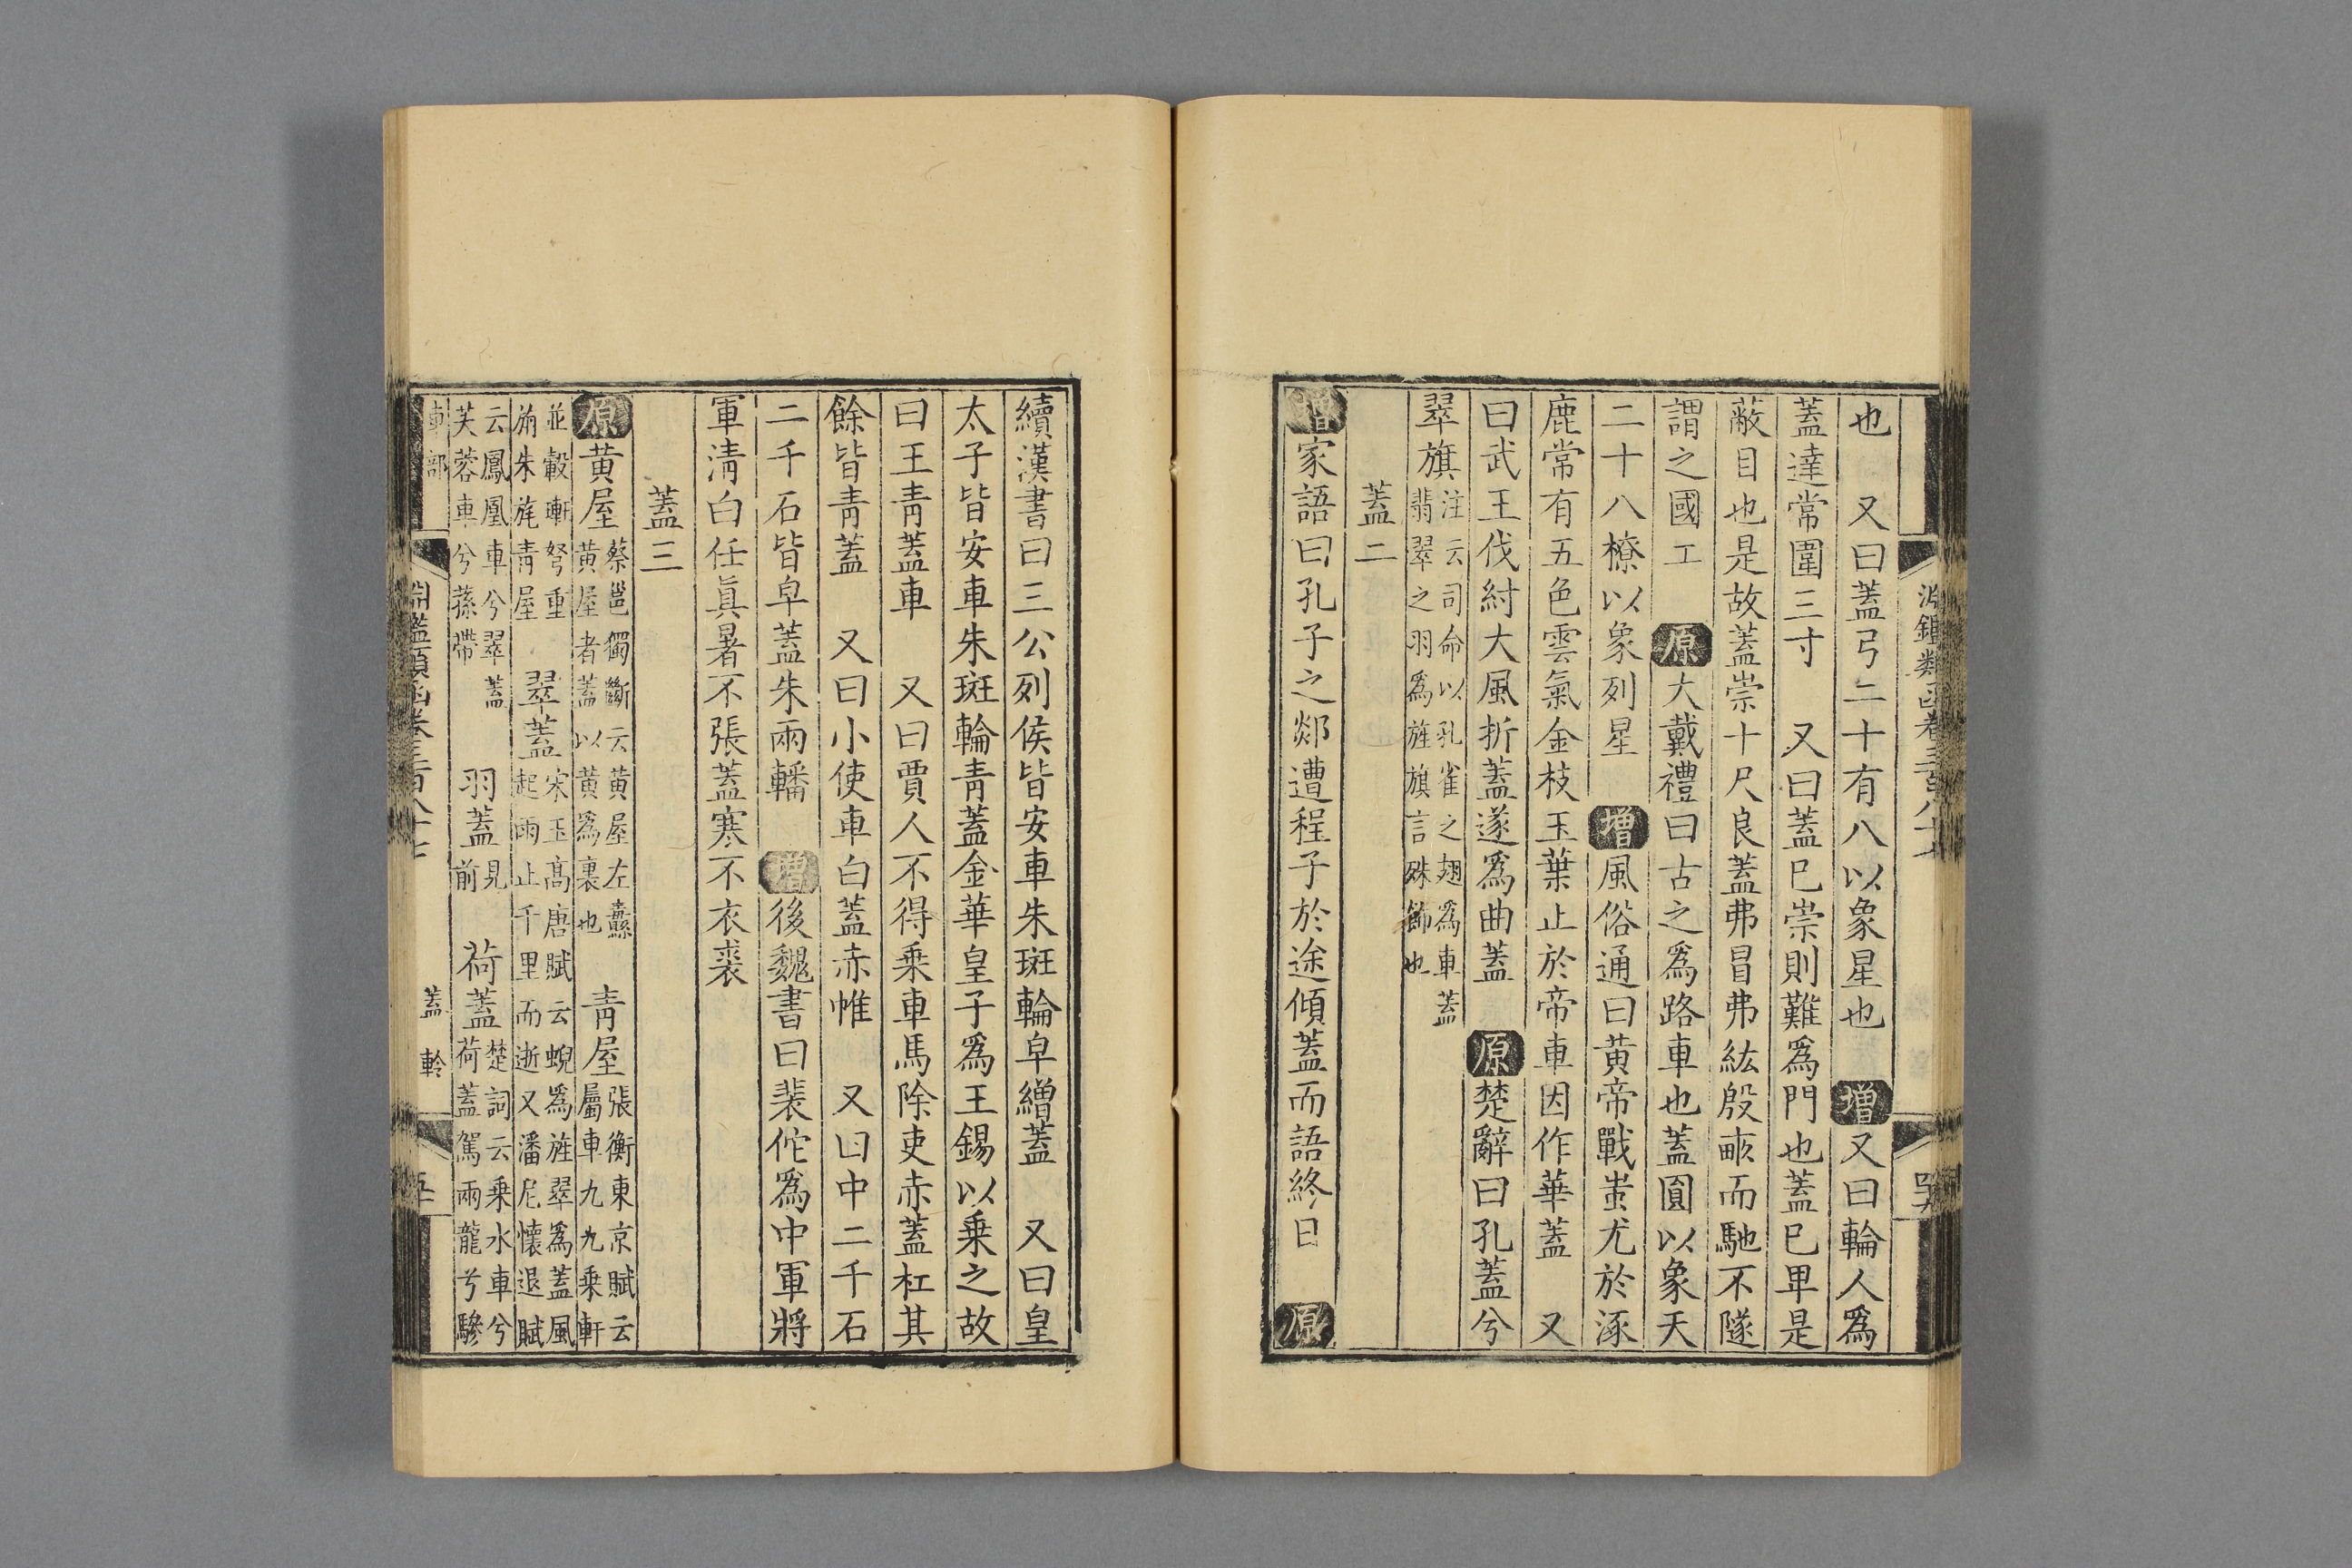 淵鑑類函卷三百八十七
也　又曰蓋弓二十有八以象星也　增又曰輪人爲
蓋達常圍三寸　又曰蓋已崇則難爲門也蓋已卑是
蔽目也是故蓋崇十尺良蓋弗冒弗紘殷畝而馳不隧
謂之國工　原大戴禮曰古之爲路車也蓋圓以象天
二十八橑以象列星　增風俗通曰黃帝戰蚩尤於涿
鹿常有五色雲氣金枝玉葉止於帝車因作華蓋　又
曰武王伐紂大風折蓋遂爲曲蓋　原楚辭曰孔蓋兮
翠旗注云司命以孔雀之翅爲車蓋
翡翠之羽爲旌旗言殊飾也
蓋二
增家語曰孔子之郯遭程子於途傾蓋而語終日　原
續漢書曰三公列侯皆安車朱斑輪皁繒蓋　又曰皇
太子皆安車朱斑輪靑蓋金華皇子爲王錫以乘之故
曰王靑蓋車　又曰賈人不得乘車馬除吏赤蓋杠其
餘皆靑蓋　又曰小使車白蓋赤帷　又曰中二千石
二千石皆皁蓋朱兩轓　增後魏書曰裴佗爲中軍將
軍淸白任眞暑不張蓋寒不衣裘
蓋三
原黃屋蔡邕獨斷云黃屋左纛
黃屋者蓋以黃爲裏也　靑屋張衡東京賦云
屬車九九乘軒
並轂𨍏弩重
旃朱旄靑屋　翠蓋宋玉高唐賦云蜺爲旌翠爲蓋風
起雨止千里而逝又潘尼懷退賦
云鳳凰車兮翠蓋
芙蓉車兮蓀帶　羽蓋見
前　荷蓋楚詞云乘水車兮
荷蓋駕兩龍兮驂
車部
淵鑑類函卷三百八十七
蓋　軨